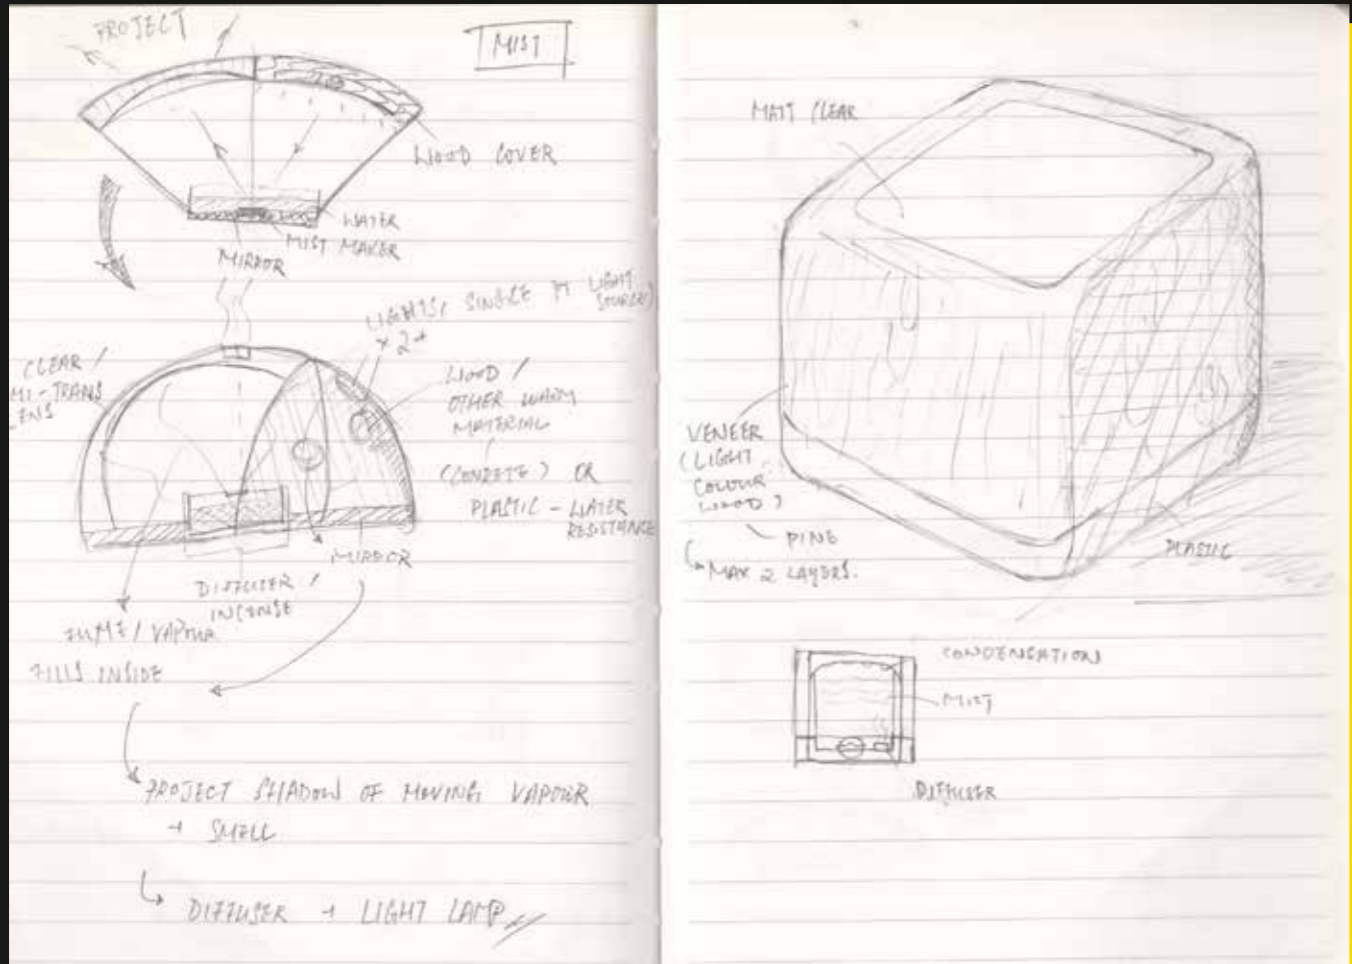 PROJECT
MIST
WOOD COVER
WATER
MIST MAKER
MIRROR
LIGHTS / SINGLE PT LIGHT
SOURCE)
× 2 +
CLEAR /
MI-TRANS
LENS
WOOD /
OTHER WARM
MATERIAL
(CONCRETE) OR
PLASTIC - WATER
RESISTANCE
MIRROR
DIFFUSER /
INCENSE
FUME / VAPOUR
FILLS INSIDE
PROJECT SHADOW OF MOVING VAPOUR
+ SMELL
DIFFUSER + LIGHT LAMP
MATT CLEAR
VENEER
(LIGHT
COLOUR
WOOD)
PINE
MAX 2 LAYERS.
PLASTIC
CONDENSATION
MIST
DIFFUSER